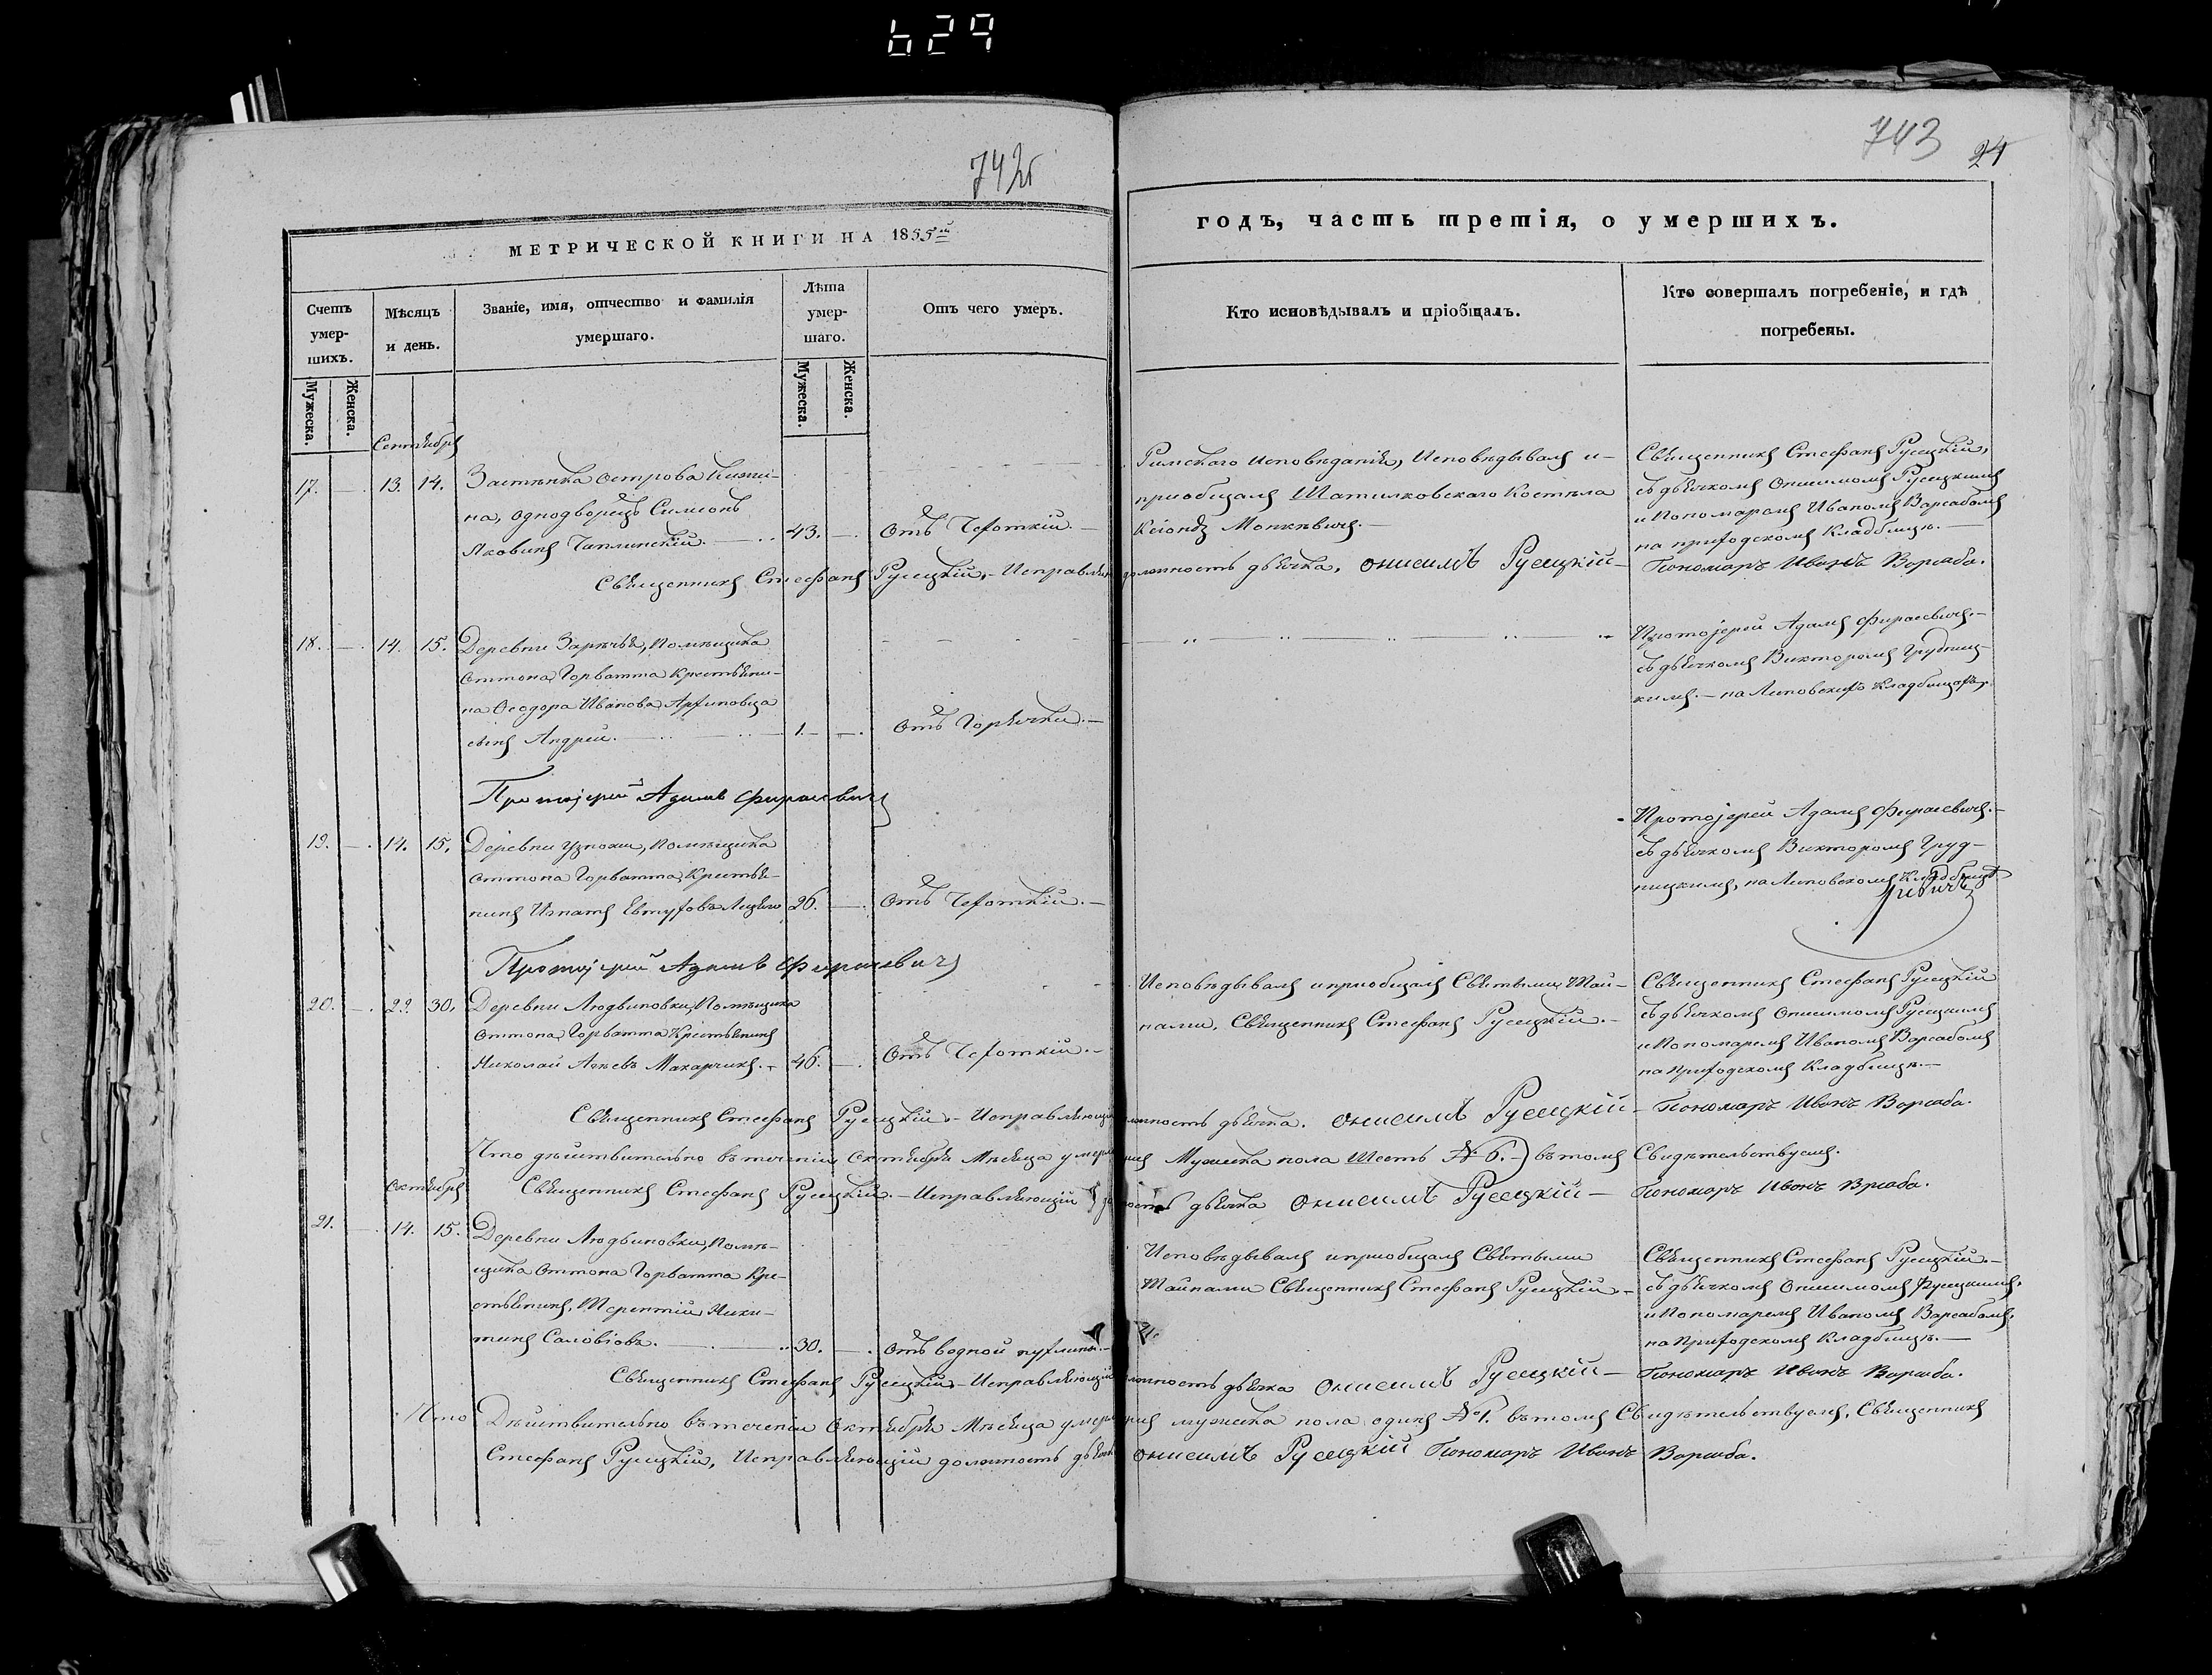 629
742б
743
24
МЕТРИЧЕСКОЙ КНИГИ НА 1855й
годъ, часть третія, о умершихъ.
Счетъ умершихъ.
Мужеска.
Женска.
Мѣсяцъ и день.
Званіе, имя, отчество и фамилія умершаго.
Лѣта умершаго.
Мужеска.
Женска.
Отъ чего умеръ.
Кто исповѣдывалъ и пріобщалъ.
Кто совершалъ погребеніе, и гдѣ погребены.
Сентября
17. — 13. 14. Застѣнка Острова
на, однодворецъ Симеонъ
Яковинъ Чаплинскій. 43. — Отъ Чехоткій
Римскаго исповѣданія, Исповѣдывалъ и
приобщалъ Шатилковскаго Костѣла
Ксіондз
Священникъ Стефанъ Русецкій,
съ дьячкомъ Онисимомъ Русецкимъ
и Пономаремъ Иваномъ Варсабомъ
на приходскомъ Кладбищѣ.
Священникъ Стефанъ Русецкій, — Исправляющ должность дьячка, Онисимъ Русецкій — Пономаръ Иванъ Варсаба.
18. — 14. 15. Деревни Зарѣчья, Помѣщика
Оттона Горватта Крестьяни-
на Ѳеодора Иванова
сынъ Андрей. 1. — Отъ Горячки.
Протоіерей Адамъ Фираевичъ.
съ дьячкомъ Викторомъ Грудниц-
кимъ. — на Липовскихъ Кладбищахъ.
Протоіерей Адамъ Фираевичъ
19. — 14. 15. Деревни Узнохи, Помѣщика
Оттона Горватта, Крестья-
нинъ Игнатъ Евтуховъ 26. — Отъ Чехоткій.
Протоіерей Адамъ Фираевичъ.
съ дьячкомъ Викторомъ Груд-
ницкимъ, на Липовскомъ Кладбищѣ
Протоіерей Адамъ Фираевичъ
20. — 29. 30. Деревни Людвиновки, Помѣщика
Оттона Горватта Крестьянинъ
Николай Макарчикъ. 46. — Отъ Чехоткій.
Исповѣдывалъ и приобщалъ Святыми Тай-
нами, Священникъ Стефанъ Русецкій.
Священникъ Стефанъ Русецкій
съ дьячкомъ Онисимомъ Русецкимъ
и Пономаремъ Иваномъ Варсабомъ
на Приходскомъ Кладбищѣ.
Священникъ Стефанъ Русецкій — Исправляющій должность дьячка. Онисимъ Русецкій — Пономаръ Иванъ Варсаба.
Что дѣйствительно въ теченіи Октября Мѣсяца умер Мужеска пола Шесть № 6. въ томъ Свидѣтельствуемъ.
Священникъ Стефанъ Русецкій. — Исправляющій дьячка Онисимъ Русецкій — Пономаръ Иванъ Врсаба.
Октября
21. — 14. 15. Деревни Людвиновки, Помѣ-
щика Оттона Горватта Кре-
стьянинъ, Терентій Ники-
тинъ Саловіовъ. 30. — Отъ водной пухлины.
Исповѣдывалъ и приобщалъ Святыми
Тайнами Священникъ Стефанъ Русецкій.
Священникъ Стефанъ Русецкій.
съ дьячкомъ Онисимомъ Русецкимъ,
и Пономаремъ Иваномъ Варсабомъ,
на Приходскомъ Кладбищѣ.
Священникъ Стефанъ Русецкій — Исправляющій должность дьячка Онисимъ Русецкій — Пономаръ Иванъ Варсаба.
Что Дѣйствительно въ теченіи Октября Мѣсяца умер мужеска пола одинъ № 1. въ томъ Свидѣтельствуемъ, Священникъ
Стефанъ Русецкій, Исправляющій должность дьячка Онисимъ Русецкій Пономаръ Иванъ Варсаба.